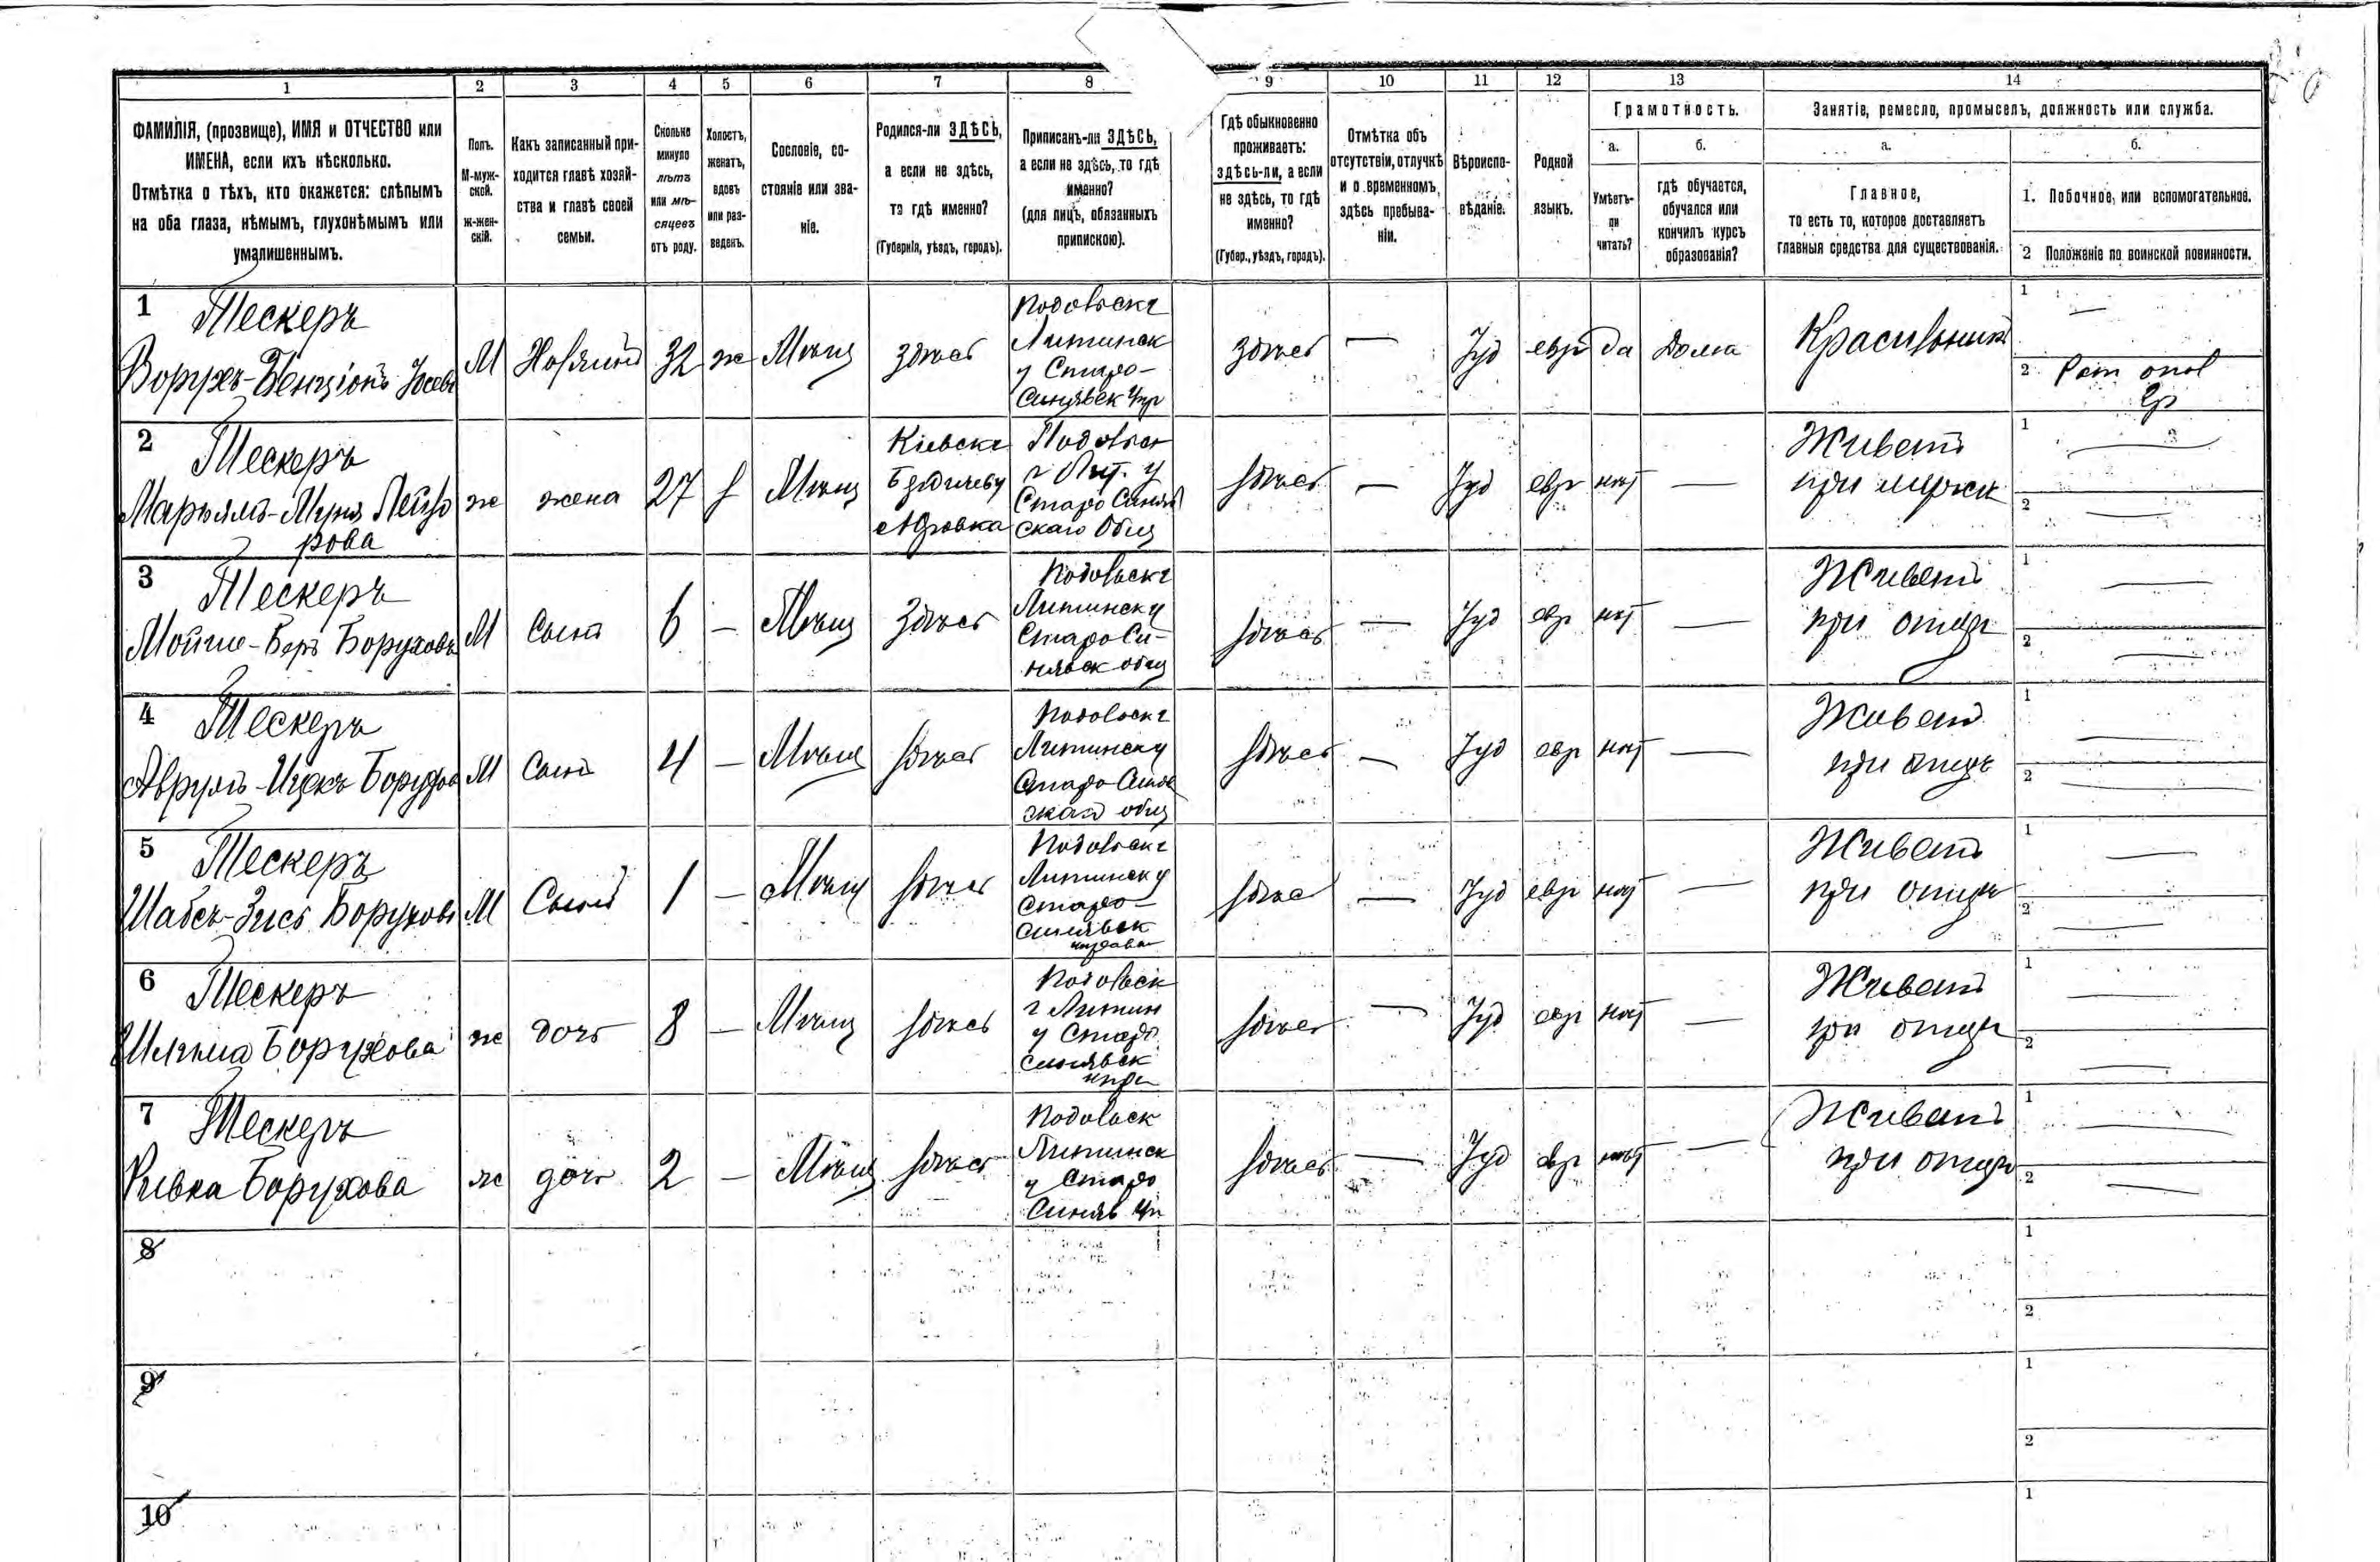 1 2 3 4 5 6 7 8 9 10 11 12 13 14
ФАМИЛІЯ, (прозвище), ИМЯ и ОТЧЕСТВО или
ИМЕНА, если ихъ нѣсколько.
Отмѣтка о тѣхъ, кто окажется: слѣпымъ
на оба глаза, нѣмымъ, глухонѣмымъ или
умалишеннымъ.
Полъ.
М-муж-
ской.
ж-жен-
скій.
Какъ записанный при-
ходится главѣ хозяй-
ства и главѣ своей
семьи.
Сколько
минуло
лѣтъ
или мѣ-
сяцевъ
отъ роду.
Холостъ,
женатъ,
вдовъ
или раз-
веденъ.
Сословіе, со-
стояніе или зва-
ніе.
Родился-ли ЗДѢСЬ,
а если не здѣсь,
то гдѣ именно?
(Губернія, уѣздъ, городъ).
Приписанъ-ли ЗДѢСЬ,
а если не здѣсь, то гдѣ
именно?
(для лицъ, обязанныхъ
припискою).
Гдѣ обыкновенно
проживаетъ:
здѣсь-ли, а если
не здѣсь, то гдѣ
именно?
(Губер., уѣздъ, городъ).
Отмѣтка объ
отсутствіи, отлучкѣ
и о временномъ
здѣсь пребыва-
ніи.
Вѣроиспо-
вѣданіе.
Родной
языкъ.
Грамотность.
а.
Умѣетъ-
ли
читать?
б.
гдѣ обучается,
обучался или
кончилъ курсъ
образованія?
Занятіе, ремесло, промыселъ, должность или служба.
а.
Главное,
то есть то, которое доставляетъ
главныя средства для существованія.
б.
1. Побочное, или вспомогательное.
2 Положеніе по воинской повинности.
1 Тескеръ
Борухъ-Бенціонъ
М
32 ж Мѣщ здѣсь
Подольск г
Литинск
у Старо-
Синявск
здѣсь — Іуд евр да дома
1 —
2
2 Тескеръ
Марьямъ-
рова
ж жена 27 Мѣщ
Кіевск г
Подольс
г Лит. у
Старо Синяв
скаго Общ
здѣсь — Іуд евр нѣт —
Живетъ
при
1 —
2 —
3 Тескеръ
Мойше-Беръ Борухов
М Сынъ 6 — Мѣщ здѣсь
Подольск г
Литинск у
Старо Си-
нявск общ
здѣсь — Іуд евр нѣт —
Живетъ
при отцѣ
1 —
2 —
4 Тескеръ
Аврумъ-Ицекъ Борухов
М Сынъ 4 — Мѣщ здѣсь
Подольск г
Литинск у
Старо Синяв
скаго общ
здѣсь — Іуд евр нѣт —
Живетъ
при отцѣ
1 —
2 —
5 Тескеръ
Шабсъ-Зись Борухов
М Сынъ 1 — Мѣщ здѣсь
Подольск г
Литинск у
Старо-
Синявск
здѣсь — Іуд евр нѣт —
Живетъ
при отцѣ
1 —
2 —
6 Тескеръ
Борухова
ж дочь 8 — Мѣщ здѣсь
Подольск
г Литин
у Старо
Синявск
здѣсь — Іуд евр нѣт —
Живетъ
при отцѣ
1 —
2 —
7 Тескеръ
Ривка Борухова
ж дочь 2 — Мѣщ здѣсь
Подольск
Литинск
у Старо
Синяв
здѣсь — Іуд евр нѣт —
Живетъ
при отцѣ
1 —
2 —
8
1
2
9
1
2
10
1